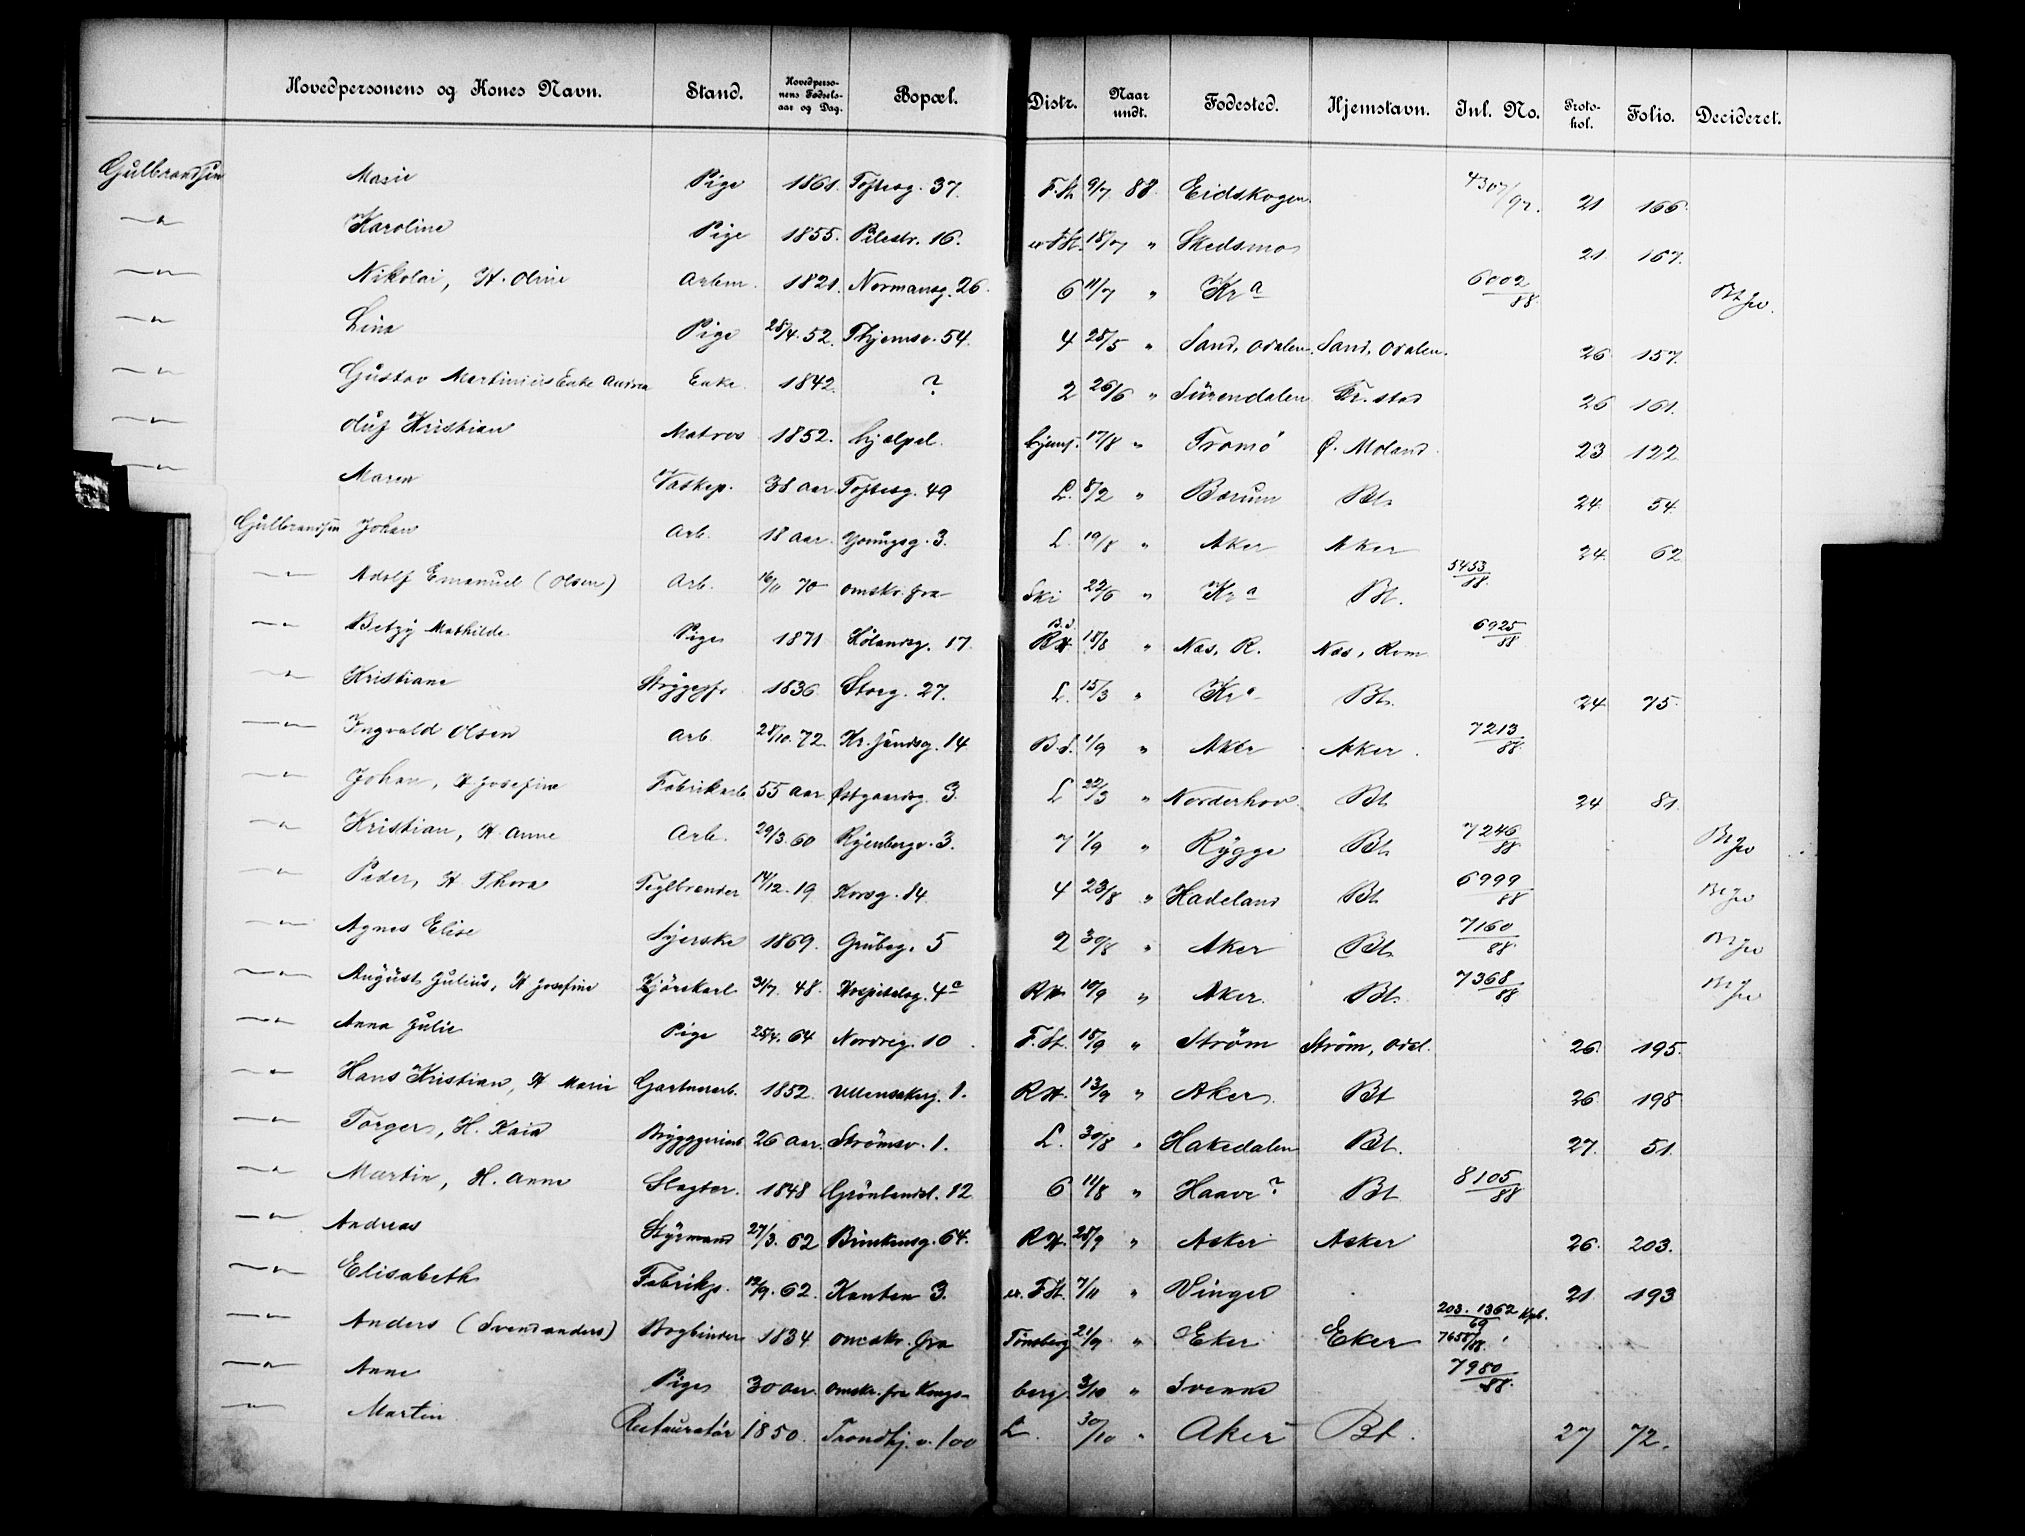 Hovedpersonens og Kones Navn. Stand. Hovedpersonens Fødselsaar og Dag. Bopæl. Distr. Naar undt. Fødested. Hjemstavn. Inl. No. Protokol. Folio. Decideret.
Gulbrandsen Marie Pige 1861. Toftesg. 37. F.St. 9/7 88. Eidskogen. 4307/92. 21 166.
—"— Karoline Pige 1855. Pilestr. 16. F.St. 18/7 " Skedsmo 21. 167.
—"— Nikolai, H. Oline Arbm. 1821. Normansg. 26. 6 11/7 " Kra 6002/88.
—"— Lina Pige 28/4. 52. Thjemsv. 54. 4 28/5 " Sand, Odalen. Sand, Odalen. 26 157.
—"— Gustav Martinius Enke Andrea Enke. 1842. ? 2 26/6 " Surendalen Fr.stad 26 161.
—"— Oluf Kristian Matros 1852. hjelpel. hjemf. 17/8 " Tromö Ø. Moland. 23 122
—"— Maren Vaskep. 38 aar Toftesg. 49 L. 8/2 " Bærum Bt. 24. 54.
Gulbrandsen Johan Arb. 18 aar. Youngsg. 3. L. 19/8 " Aker Aker 24. 62.
—"— Adolf Emanuel (Olsen) Arb. 16/11 70 omskr. fra Ski 22/6 " Kra Bt. 5453/88.
—"— Betzy Mathilde Pige 1871 Hølandsg. 17. B.d. RH. 18/8 " Næs, R. Næs, Rom 6925/88
—"— Kristiane 1836 Storg. 27. L. 15/3 " Kra Bt. 24 75.
—"— Ingvald Olsen Arb. 28/10. 72. 14 B.d. 1/9 " Aker Aker. 7213/88.
—"— Johan, H. Josefine Fabrikarb. 55 aar Østgaardsg. 3. L 22/3 " Norderhov. Bt 24 81.
—"— Kristian, H. Anne Arb. 29/3. 60 Ryenbergv. 3. 7 1/9 " Rygge Bt. 7246/88
—"— Peder, H. Thora Teglbrænder 14/12. 19 Korsg. 14. 4 23/8 " Hadeland Bt 6999/88
—"— Agnes Elise Syerske 1869. Grubeg. 5 2 30/8 " Aker Bt. 7160/88.
—"— August Julius, H Josefine Kjørekarl 31/7. 48. Hospitalsg. 4a RH. 10/9 " Aker. Bt. 7368/88
—"— Anna Julie Pige 25/4. 64 Nordreg. 10. F.St. 18/9 " Strøm Strøm, Odal. 26. 195.
—"— Hans Kristian, H Marie Gartnerarb. 1852. Ullensakerg. 1. RH. 13/9 " Aker Bt 26. 198
—"— Torger, H. Kaia Bryggeriarb. 26 aar. Strømsv. 1. L. 30/8 " Hakedalen Bt. 27. 51.
—"— Martin, H. Anne Slagter. 1848 Grønlandsl. 12 6 14/8 " Haave? Bt 8105/88
—"— Andreas Styrmand 27/3. 62 Brinkensg. 64. RH. 28/9 " Asker Asker 26. 203.
—"— Elisabeth Fabrikp. 12/9. 62. Kanten 3. F.St. 7/11 " Vinger 21. 193
—"— Anders (Svensanders) Bogbinder 1834 omskr. fra Tønsberg 21/9 " Eker Eker 203. 1362/69 7658/88.
—"— Anne Pige 30 aar. omskr. fra Kongsberg. 3/10 " Svenne 7980/88.
—"— Martin Restauratør 1850. Trondhj.v. 100 L. 30/10 " Aker Bt. 27 72.